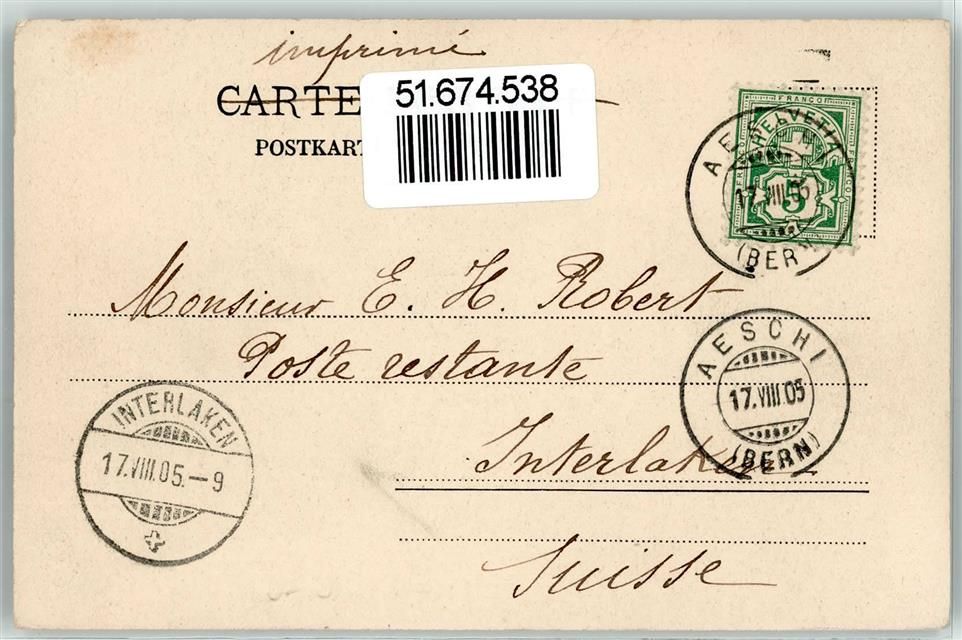 imprimé
CARTE
POSTKART
51.674.538
FRANCO
HELVETIA
5
AESCHI
17.VIII.05
(BERN)
Monsieur E. H. Robert
Poste restante
Interlaken
Suisse
AESCHI
17.VIII.05
(BERN)
INTERLAKEN
17.VIII.05.-9